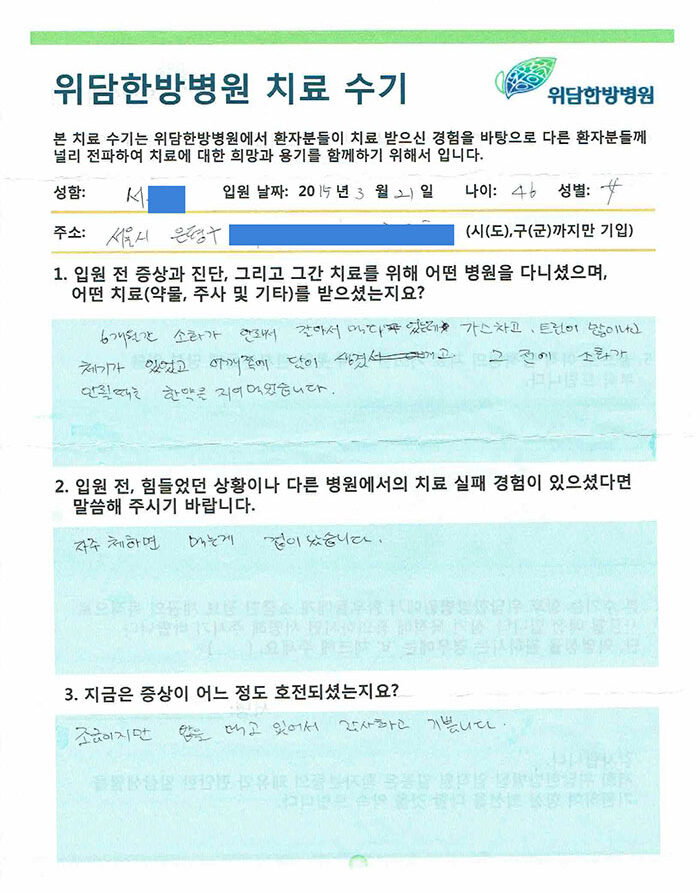 위담한방병원 치료 수기
위담한방병원
본 치료 수기는 위담한방병원에서 환자분들이 치료 받으신 경험을 바탕으로 다른 환자분들께
널리 전파하여 치료에 대한 희망과 용기를 함께하기 위해서 입니다.
성함: 서 입원 날짜: 2015년 3월 21일 나이: 46 성별: 女
주소: 서울시 은평구 (시(도),구(군)까지만 기입)
1. 입원 전 증상과 진단, 그리고 그간 치료를 위해 어떤 병원을 다니셨으며,
어떤 치료(약물, 주사 및 기타)를 받으셨는지요?
6개월간 소화가 안돼서 갈아서 먹다 가스차고, 트림이 많이나고
체기가 있었고 어깨쪽에 담이 생겼 고. 그 전에 소화가
안될때는 한약을 지어먹었습니다.
2. 입원 전, 힘들었던 상황이나 다른 병원에서의 치료 실패 경험이 있으셨다면
말씀해 주시기 바랍니다.
자주 체하면 먹는게 겁이 났습니다.
3. 지금은 증상이 어느 정도 호전되셨는지요?
조금이지만 밥을 먹고 있어서 감사하고 기쁩니다.